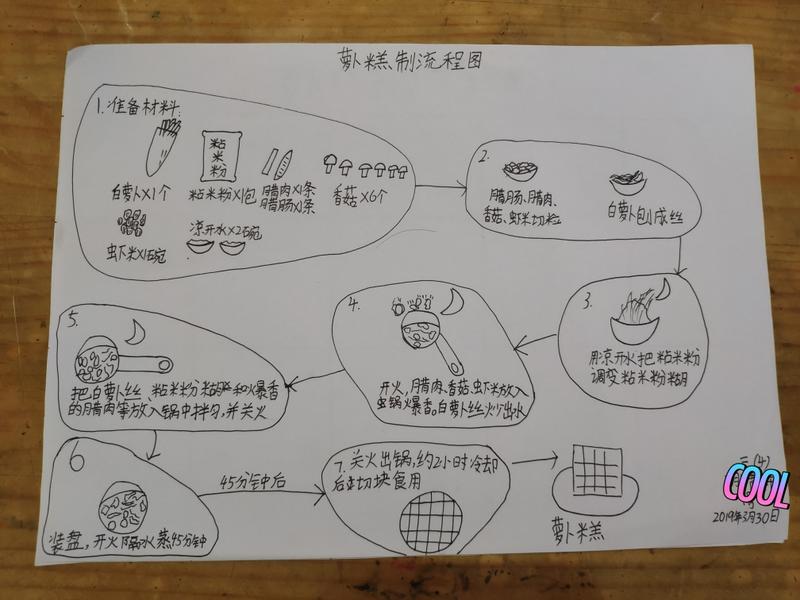 萝卜糕制流程图
1.准备材料:
粘
米
粉
白萝卜X1个
粘米粉X1包
腊肉X1条
腊肠X1条
香菇X6个
虾米X1碗
凉开水X2碗
2.
腊肠、腊肉、
香菇、虾米切粒
白萝卜刨成丝
3.
用凉开水把粘米粉
调变粘米粉糊
4.
开火,腊肉、香菇、虾米放入
锅爆香。白萝卜丝炒出水
5.
把白萝卜丝、粘米粉糊和爆香
的腊肉等放入锅中拌匀,并关火
6
装盘,开火隔水蒸45分钟
45分钟后
7.关火出锅,约2小时冷却
后切块食用
萝卜糕
三(4)
COOL
2019年3月30日